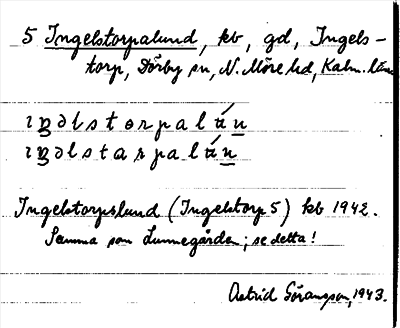 5 Ingelstorpalund, kb, gd, Ingels-
torp, Dörby sn, N. Möre hd, Kalm. län
ıŋəlstorpalún
ıŋəlstarpalún
Ingelstorpslund (Ingelstorp 5) kb 1942.
Samma som Lunnegården; se detta!
Astrid Göransson, 1943.